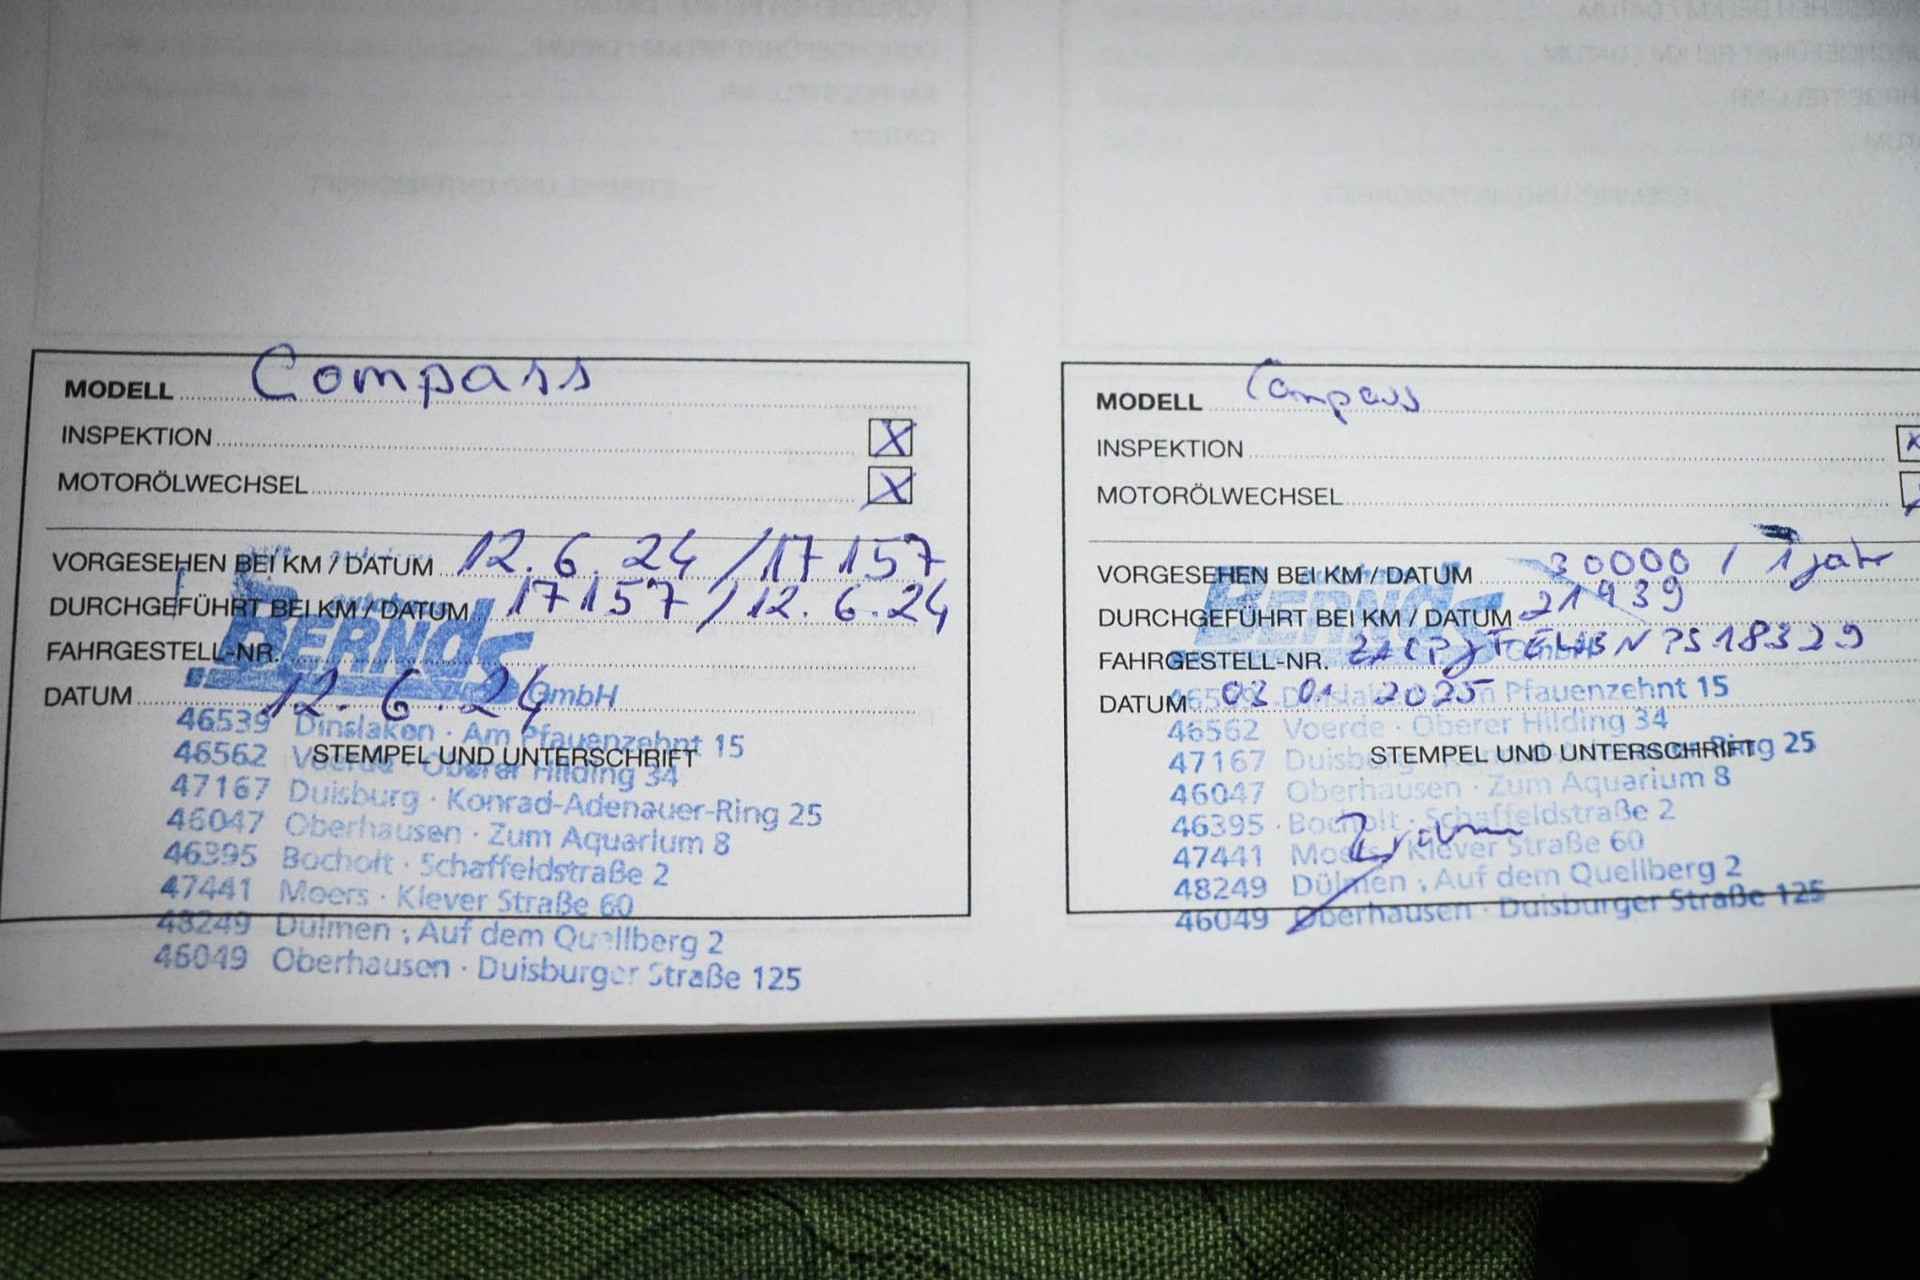 MODELL Compass
INSPEKTION X
MOTORÖLWECHSEL X
VORGESEHEN BEI KM / DATUM 12.6.24 / 17157
DURCHGEFÜHRT BEI KM / DATUM 17157 / 12.6.24
FAHRGESTELL-NR.
DATUM 12.6.24
STEMPEL UND UNTERSCHRIFT
BERNDS GmbH
46539 Dinslaken · Am Pfauenzehnt 15
46562 Voerde · Oberer Hilding 34
47167 Duisburg · Konrad-Adenauer-Ring 25
46047 Oberhausen · Zum Aquarium 8
46395 Bocholt · Schaffeldstraße 2
47441 Moers · Klever Straße 60
48249 Dülmen · Auf dem Quellberg 2
46049 Oberhausen · Duisburger Straße 125
MODELL Compass
INSPEKTION X
MOTORÖLWECHSEL
VORGESEHEN BEI KM / DATUM 30000 / 1 Jahr
DURCHGEFÜHRT BEI KM / DATUM 21939
FAHRGESTELL-NR.
DATUM 03.01.2025
STEMPEL UND UNTERSCHRIFT
BERNDS GmbH
46539 Dinslaken · Am Pfauenzehnt 15
46562 Voerde · Oberer Hilding 34
47167 Duisburg Ring 25
46047 Oberhausen · Zum Aquarium 8
46395 · Bocholt · Schaffeldstraße 2
47441 Moers · Klever Straße 60
48249 Dülmen · Auf dem Quellberg 2
46049 Oberhausen · Duisburger Straße 125